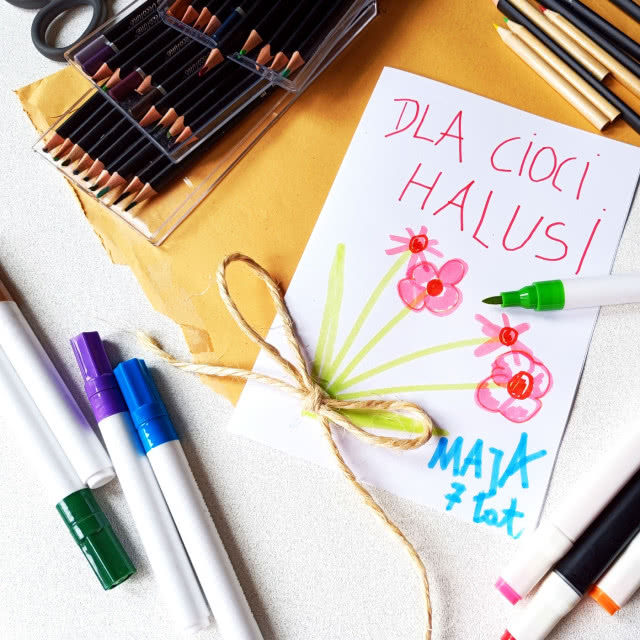 DLA CIOCI
HALUSi
MAJA
7 lat